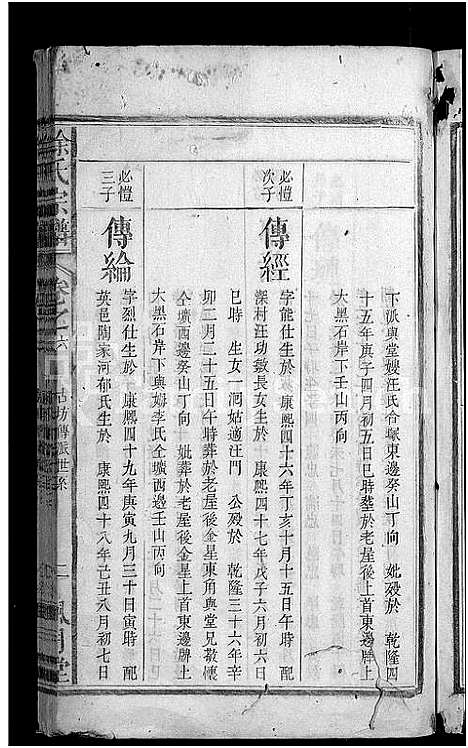 下派與堂嫂汪氏合塚東邊癸山丁向　妣殁於　乾隆四
十五年庚子四月初五日巳時塟於老屋後上首東邊牌上
大黑石岸下壬山丙向
必愷次子
傳經
字能仕生於　康熙四十六年丁亥十月十五日午時　配
深村汪功敏長女生於　康熙四十七年戊子六月初六日
巳時　生女一泗姑適汪門　公殁於　乾隆三十六年辛
卯二月二十五日午時葬於老屋後金星東角與堂兄敬懷
仝壙西邊癸山丁向　妣葬於老屋後金星上首東邊牌上
大黑石岸下與姆李氏仝壙西邊壬山丙向
必愷三子
傳綸
字烈仕生於　康熙四十九年庚寅九月三十日寅時　配
英邑陶家河郁氏生於　康熙四十八年己丑八月初七日
徐氏宗譜
卷之六
傳派世系
二